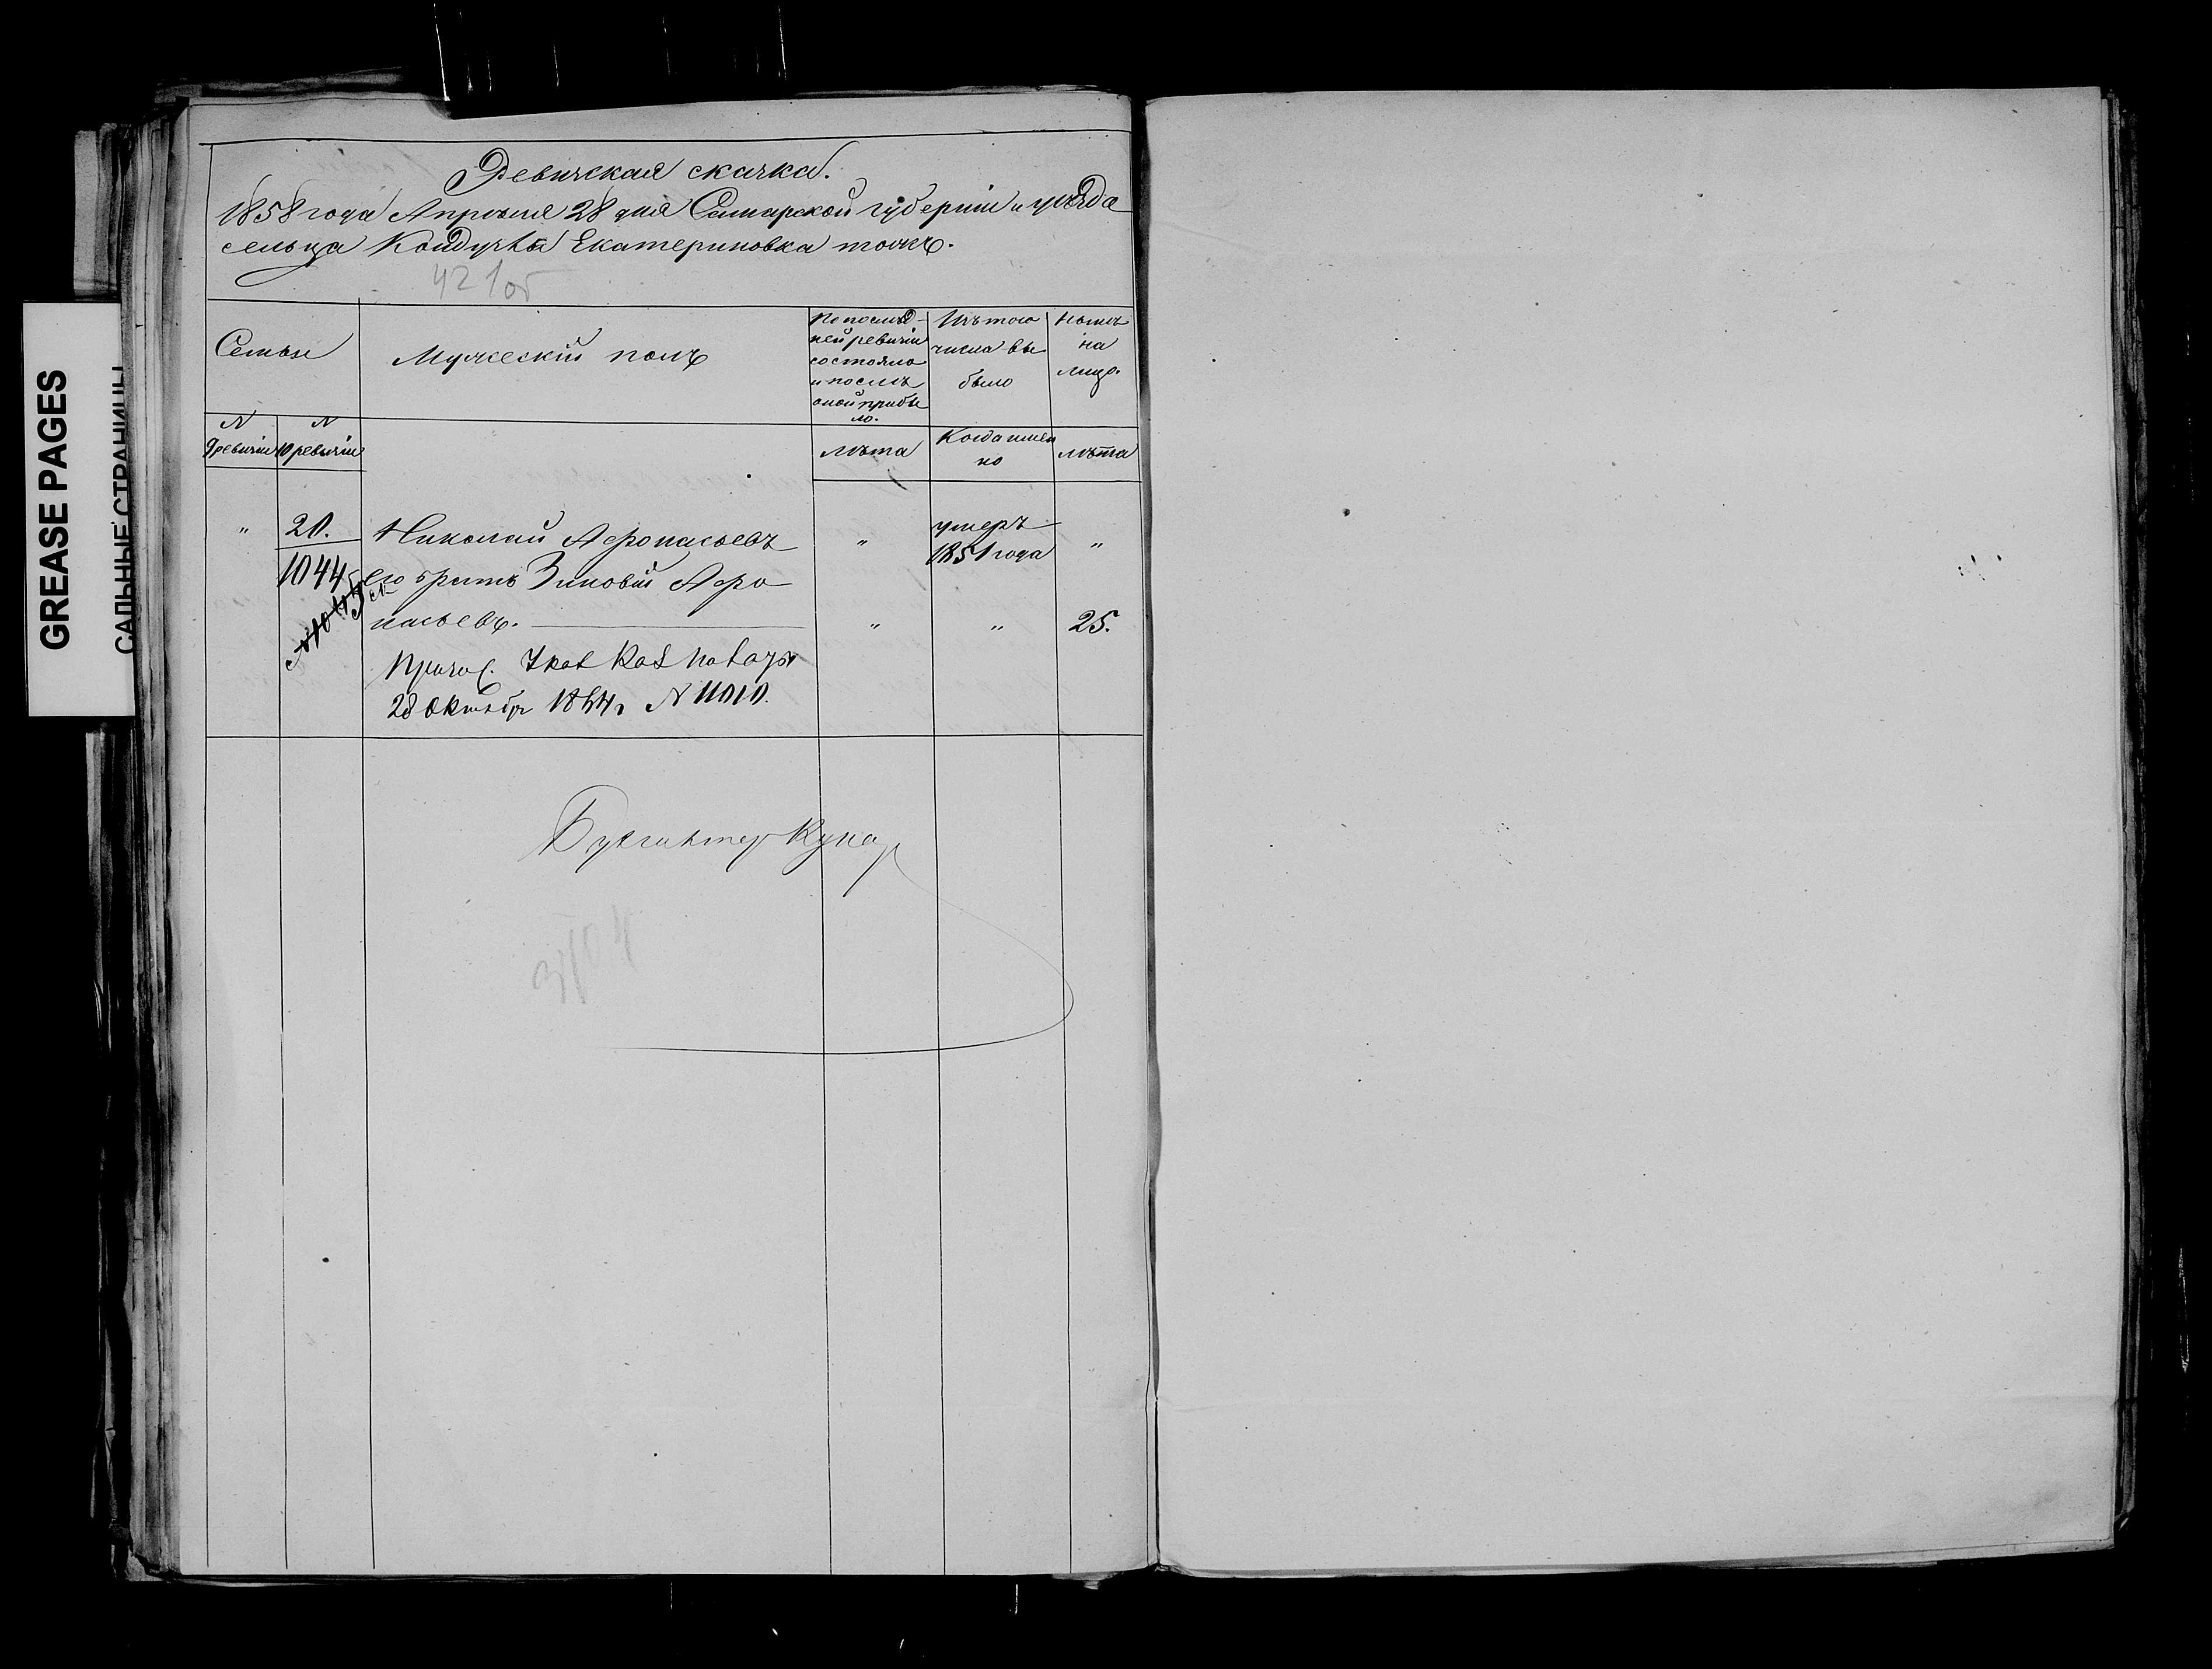 GREASE PAGES
САЛЬНЫЕ СТРАНИЦЫ
Ревизская сказка.
1858 года Апрѣля 28 дня Самарской губерніи и уѣзда
сельца Кондурчи Екатериновка тожъ.
421об
Семьи
Мужескій полъ
По послѣд-
ней ревизіи
состояло
и послѣ
оной прибы
ло.
Изъ того
числа вы
было
Нынѣ
на
лицо.
N
9 ревизіи
N
10 ревизіи
лѣта
Когда имен
но
лѣта
" 20. Николай Афонасьевъ " умеръ "
1044 1851 года
его братъ Зиновій Афо
насьевъ. " " 25.
Причис.
28 Октября N 11010.
Бухгалтер
3704